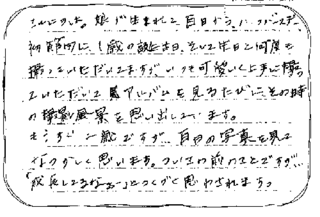 娘が生まれて百日から、ハーフバースデー、
初節句に、1歳の誕生日、そして半日と何度も
撮っていただいてますが、いつも可愛く上手に撮っ
ていただいて アルバムを見るたびに、その時
の撮影風景を思い出しています。
もうすぐ 歳ですが、百日の写真を見て
なつかしく思います。ついこの前のことですが…
成長してるなぁ…とつくづく思わされます。